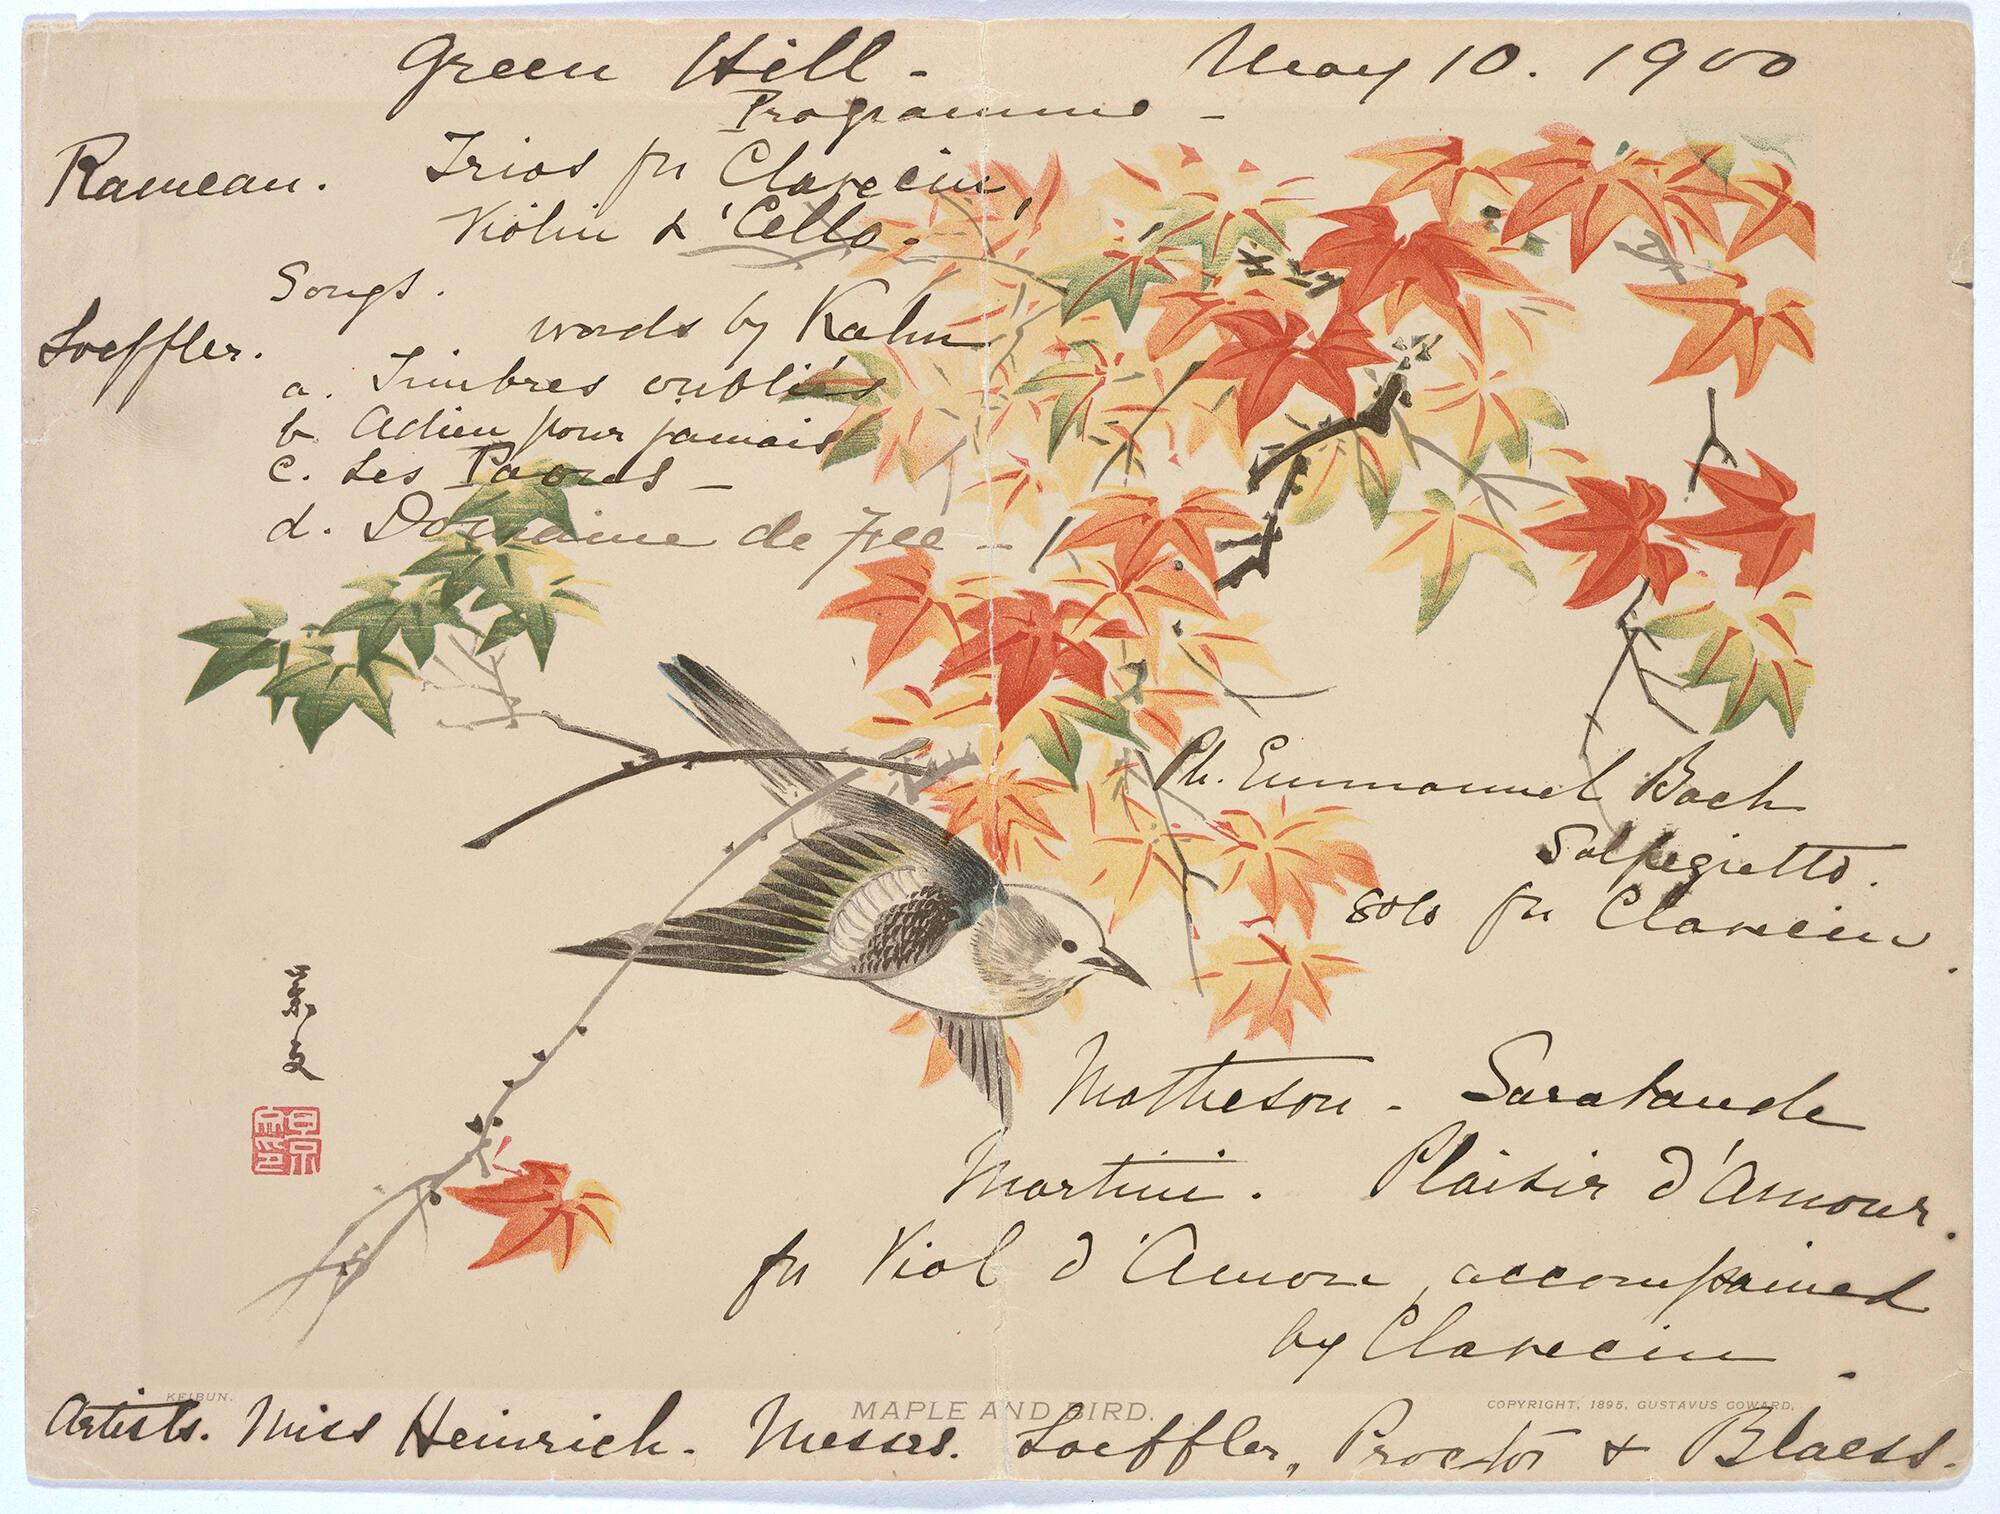 Green Hill - May 10. 1900
Programme -
Rameau. Trios for Clavecin,
Violin & 'Cello.
Songs.
Loeffler. words by Kahn
a. Timbres oubliés
b. Adieu pour jamais
c. Les Paons -
d. Domaine de Fée -
Ph. Emmanuel Bach
Solfegietto.
solo for Clavecin.
Matheson - Sarabande
Martini. Plaisir d'Amour.
for Viol d'Amore accompained
by Clavecin.
景文
KEIBUN.
MAPLE AND BIRD.
COPYRIGHT, 1895, GUSTAVUS GOWARD.
Artists. Miss Heinrich. Messrs. Loeffler, Proctor & Blaess.